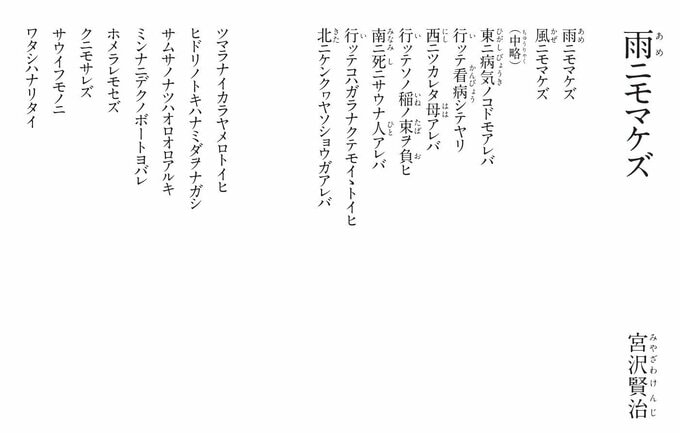 雨ニモマケズ
宮沢賢治
雨ニモマケズ
風ニモマケズ
（中略）
東ニ病気ノコドモアレバ
行ッテ看病シテヤリ
西ニツカレタ母アレバ
行ッテソノ稲ノ束ヲ負ヒ
南ニ死ニサウナ人アレバ
行ッテコハガラナクテモイヽトイヒ
北ニケンクヮヤソショウガアレバ
ツマラナイカラヤメロトイヒ
ヒドリノトキハナミダヲナガシ
サムサノナツハオロオロアルキ
ミンナニデクノボートヨバレ
ホメラレモセズ
クニモサレズ
サウイフモノニ
ワタシハナリタイ